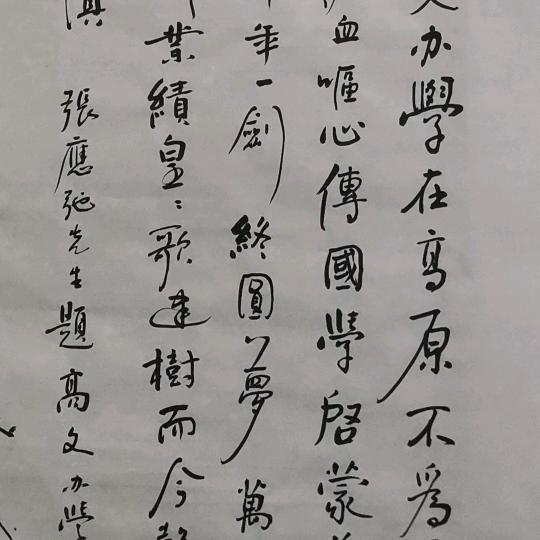 文办學在高原不爲
血嘔心傳國學啓蒙
年一劍終圓公夢萬
業績皇皇歌建樹而今
張應弛先生題高文办學